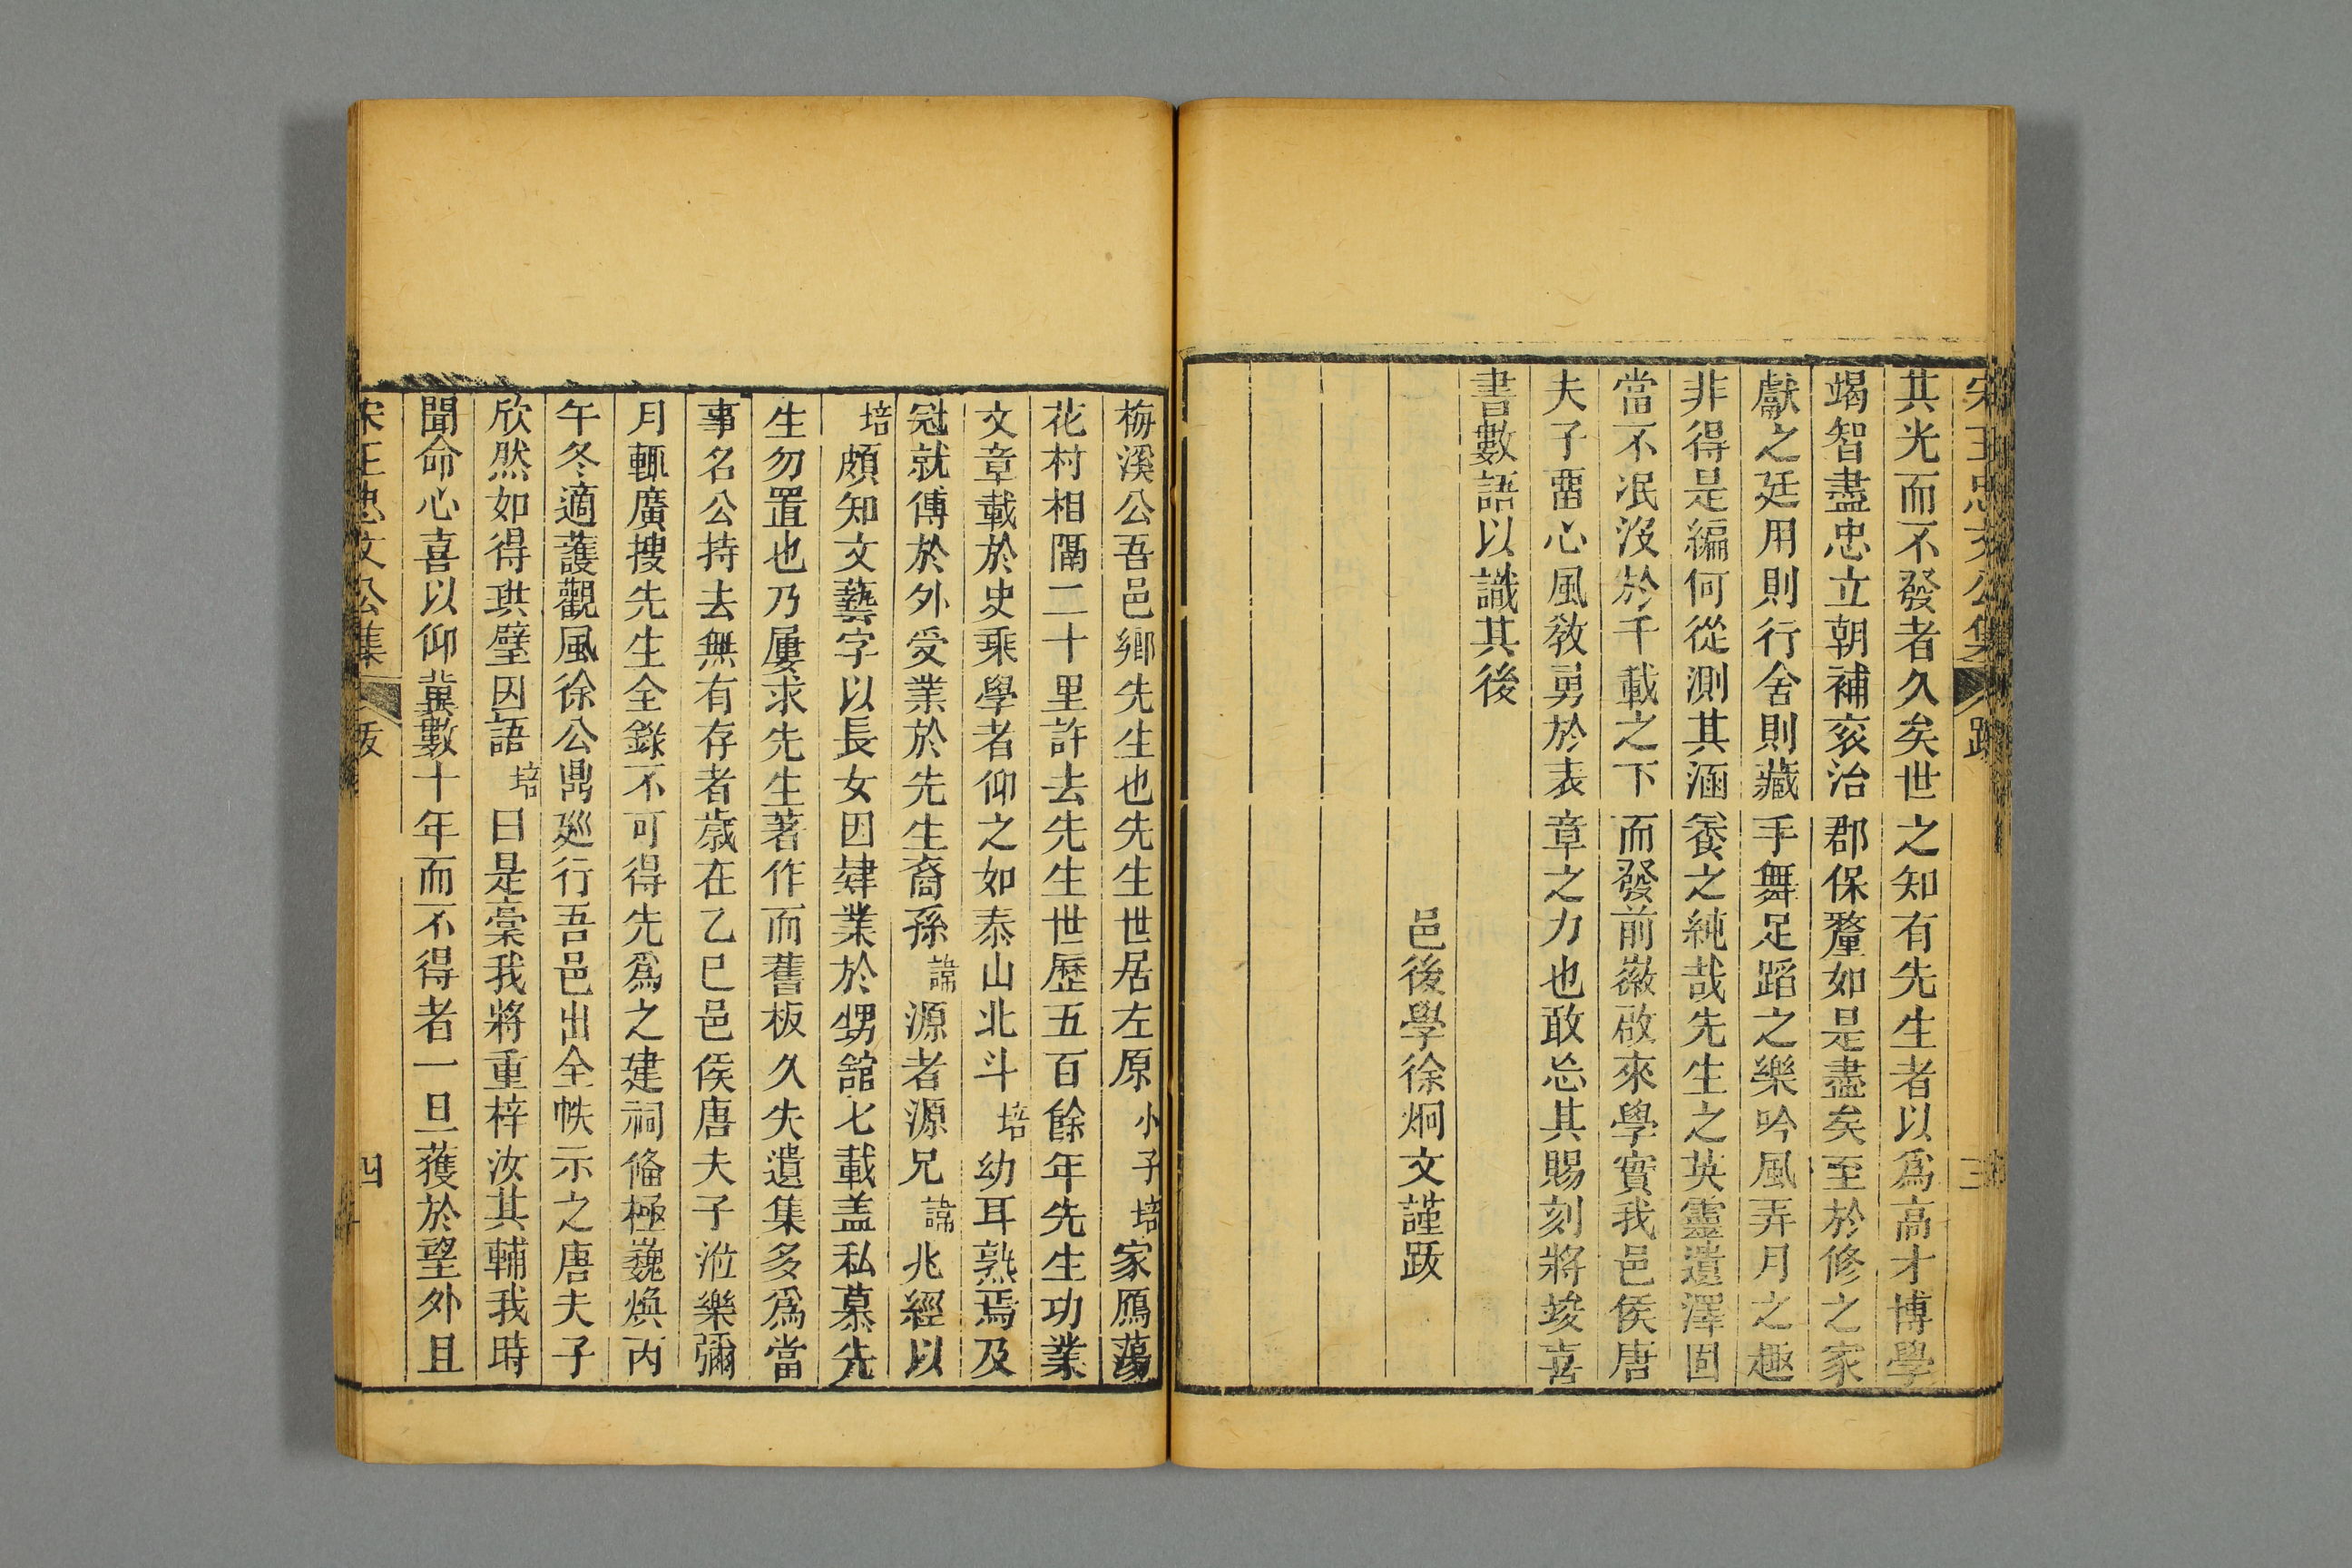 宋王忠文公集 跋 三
其光而不發者久矣世之知有先生者以爲高才博學
竭智盡忠立朝補衮治郡保釐如是盡矣至於修之家
獻之廷用則行舍則藏手舞足蹈之樂吟風弄月之趣
非得是編何從測其涵養之純哉先生之英靈遺澤固
當不泯沒於千載之下而發前徽啟來學實我邑侯唐
夫子畱心風敎勇於表章之力也敢忘其賜刻將竣喜
書數語以識其後
邑後學徐炯文謹跋
梅溪公吾邑鄉先生也先生世居左原小子培家鴈蕩
花村相隔二十里許去先生世歷五百餘年先生功業
文章載於史乘學者仰之如泰山北斗培幼耳熟焉及
冠就傅於外受業於先生裔孫諱源者源兄諱兆經以
培頗知文藝字以長女因肄業於甥舘七載盖私慕先
生勿置也乃屢求先生著作而舊板久失遺集多爲當
事名公持去無有存者歲在乙巳邑侯唐夫子涖樂彌
月輒廣搜先生全錄不可得先爲之建祠脩極巍煥丙
午冬適護觀風徐公鼎廵行吾邑出全帙示之唐夫子
欣然如得珙璧因語培曰是稾我將重梓汝其輔我時
聞命心喜以仰冀數十年而不得者一旦獲於望外且
宋王忠文公集 跋 四